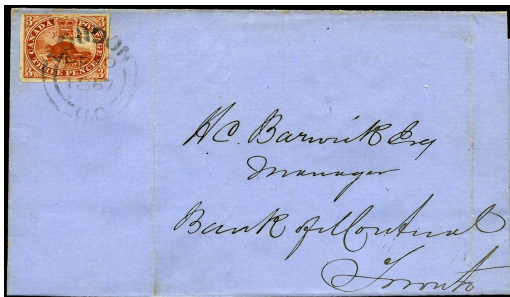 CANADA POSTAGE
3 THREE PENCE 3
LONDON
U.C
H C. Barwick Esq
Manager
Bank of Montreal
Toronto